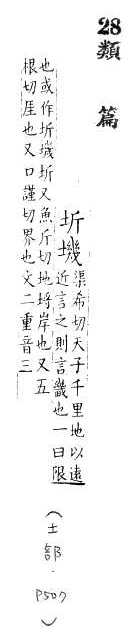 28類篇
圻㙨渠希切天子千里地以遠
近言之則言畿也一曰限
也或作圻㙨圻又魚斤切地垺岸也又五
根切厓也又口謹切界也文二重音三
(土部·P507)